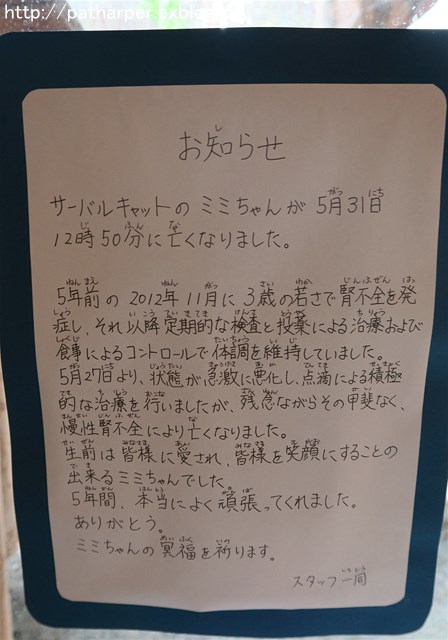 http://patharper.exblog.jp
お知らせ
サーバルキャットの ミミちゃんが 5月31日
12時50分に亡くなりました。
5年前の 2012年 11月に 3歳の若さで腎不全を発
症し、それ以降 定期的な検査と投薬による治療および
食事によるコントロールで体調を維持していました。
5月27日より、状態が急激に悪化し、点滴による積極
的な治療を行いましたが、残念ながらその甲斐なく、
慢性腎不全により亡くなりました。
生前は皆様に愛され、皆様を笑顔にすることの
出来るミミちゃんでした。
5年間、本当によく頑張ってくれました。
ありがとう。
ミミちゃんの冥福を祈ります。
スタッフ一同